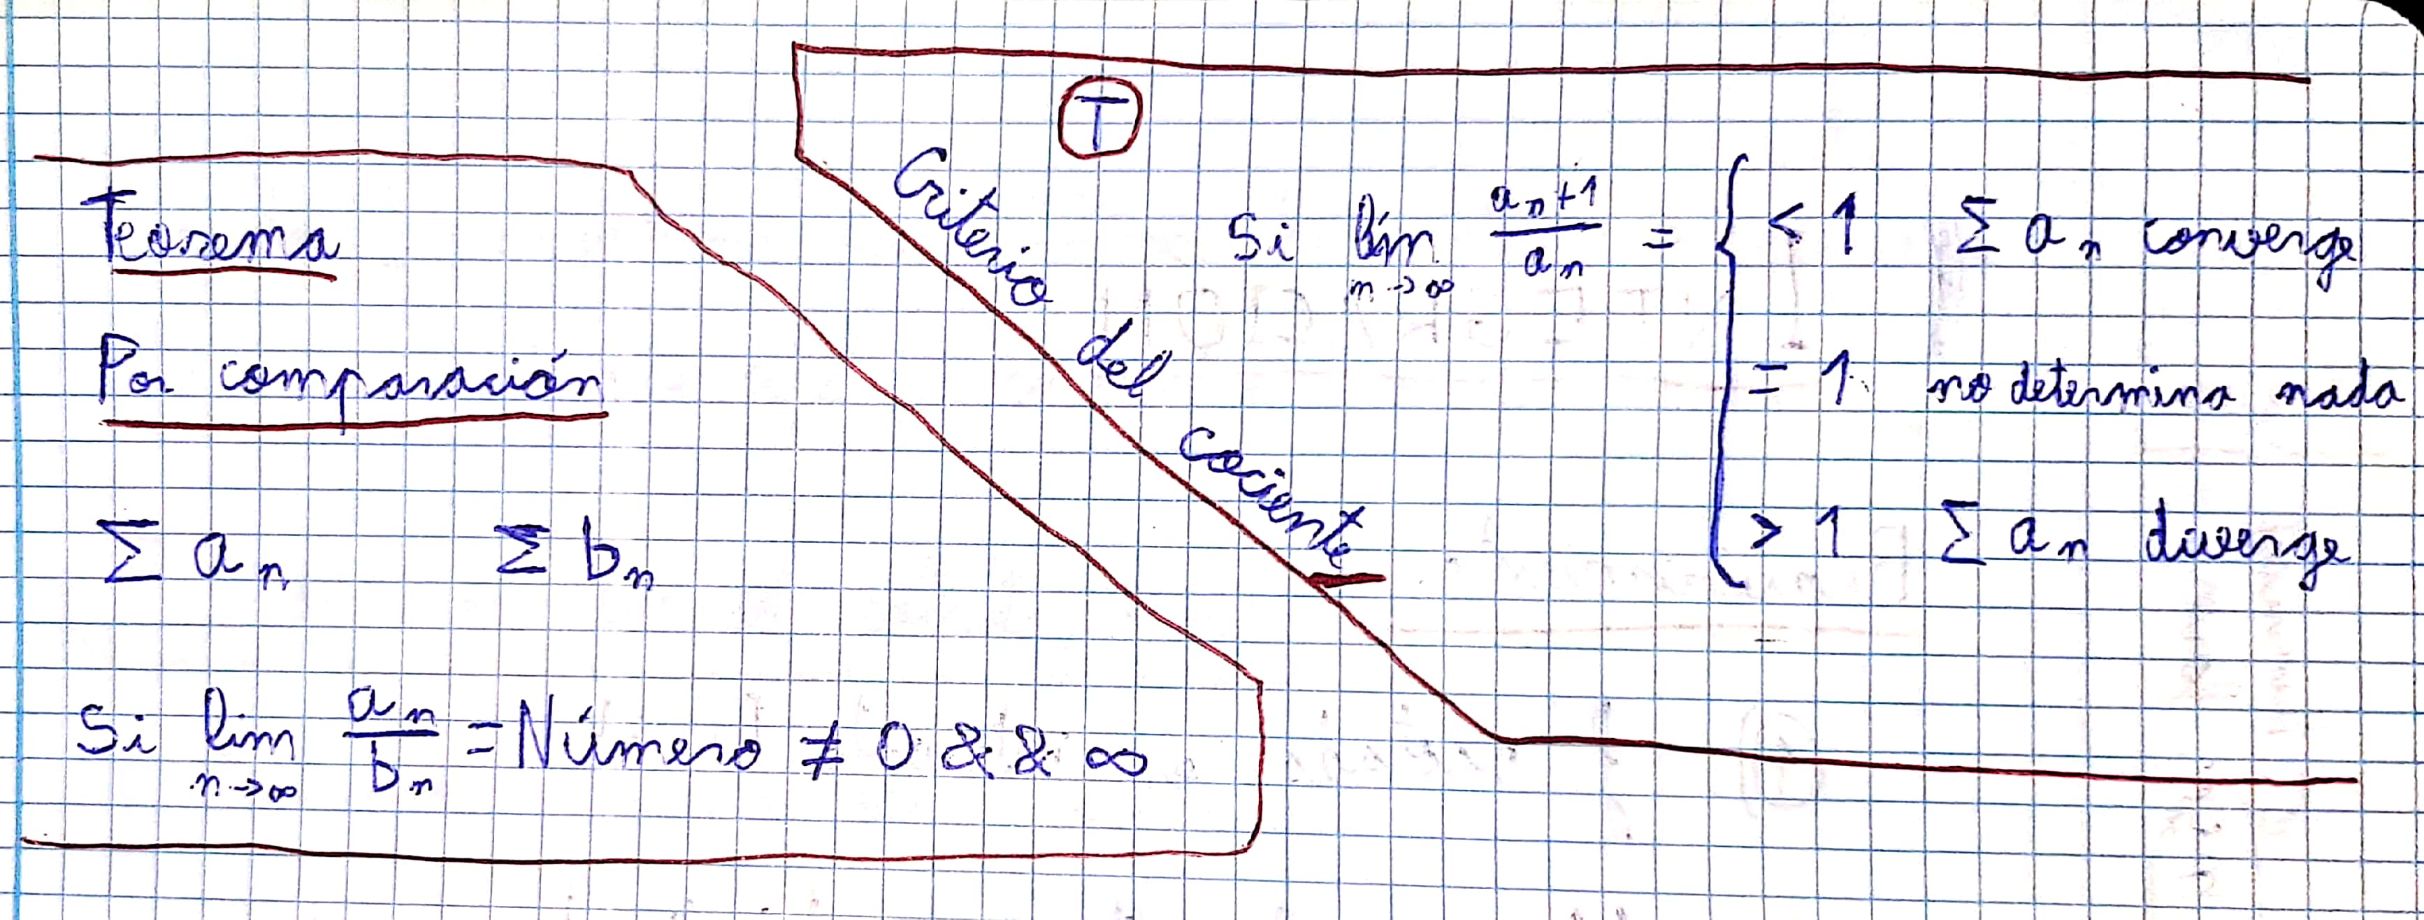 Teorema
Por comparación
Σ aₙ    Σ bₙ
Si lim n→∞ aₙ/bₙ = Número ≠ 0 && ∞
T
Criterio del cociente
Si lím n→∞ aₙ+1/aₙ = {
< 1 Σ aₙ converge
= 1 no determina nada
> 1 Σ aₙ diverge